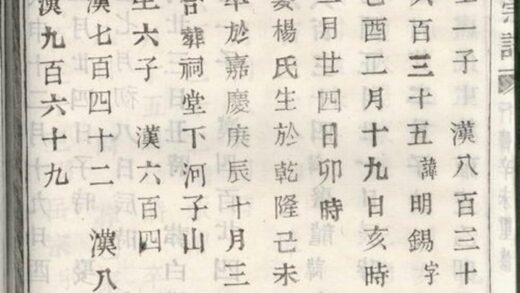 宗譜
子 漢八百三十
百三十五諱明錫字
酉二月十九日亥時
月廿四日卯時
娶楊氏生於乾隆己未
卒於嘉慶庚辰十月三
合葬祠堂下河子山
生六子 漢六百四
漢七百四十二 漢八
漢九百六十九